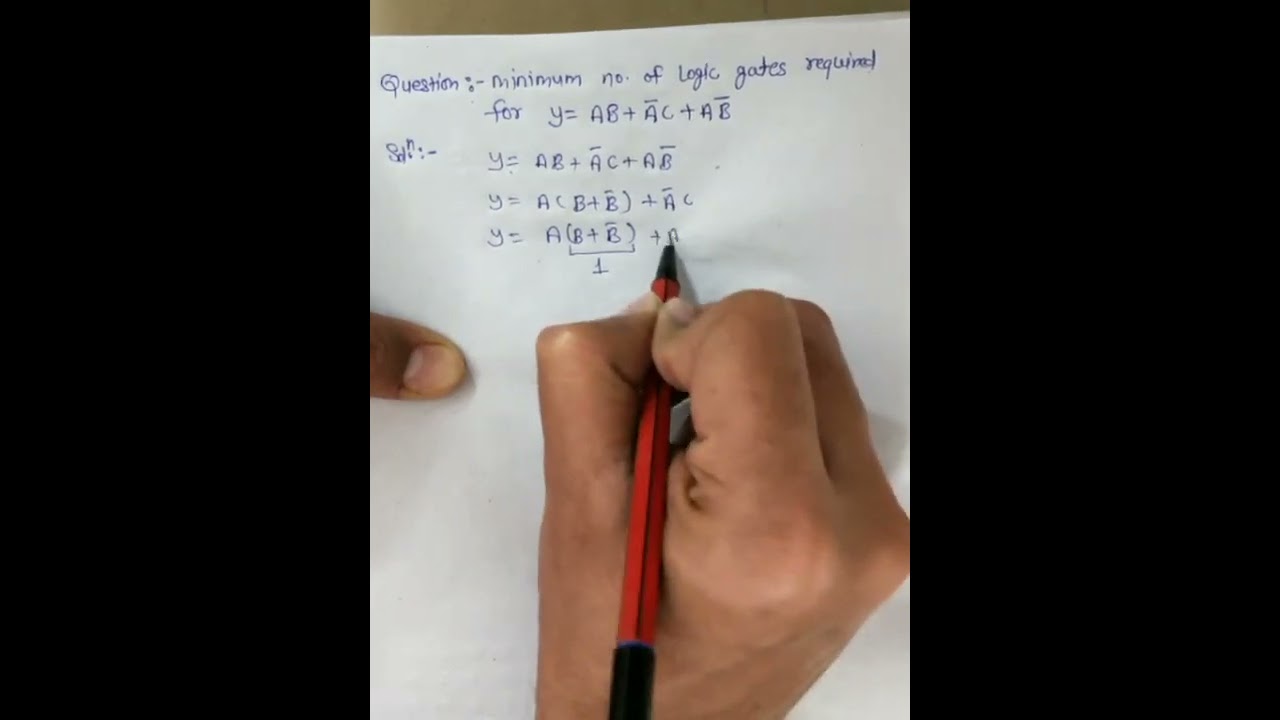 Question:- minimum no. of logic gates required
for y= AB+A̅C+AB̅
Solⁿ:- y= AB+A̅C+AB̅
y= A(B+B̅)+A̅C
y= A(B+B̅) +A
1